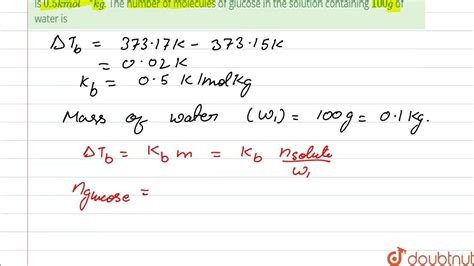 is 0.5kmol⁻¹kg. The number of molecules of glucose in the solution containing 100g of
water is
ΔT_b = 373.17K - 373.15K
= 0.02K
K_b = 0.5 K/molkg
Mass of water (W₁) = 100g = 0.1kg.
ΔT_b = K_b m = K_b n_solute/W₁
n_glucose =
doubtnut